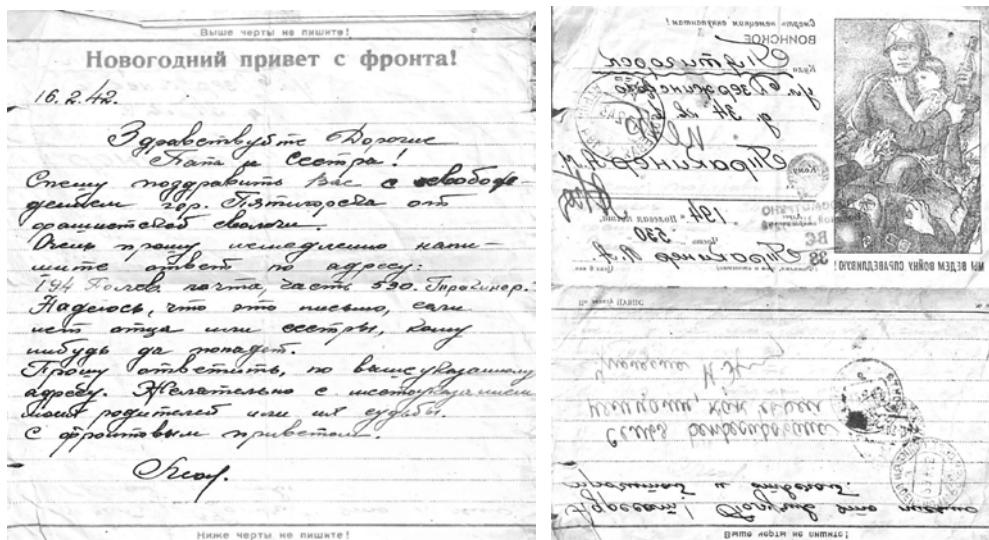 Выше черты не пишите!
Новогодний привет с фронта!
16.2.42.
Здравствуйте Дорогие
Папа и Сестра!
Спешу поздравить Вас с освобож-
дением гор. Пятигорска от
фашистской сволочи.
Очень прошу немедленно напи-
шите ответ по адресу:
194 Полев. почта, часть 530.
Надеюсь, что это письмо, если
нет отца или сестры, кому
нибудь да попадет.
Прошу ответить, по вышеуказанному
адресу. Желательно с местоуказанием
моих родителей или их судьбы.
С фронтовым приветом.
Ниже черты не пишите!
Смерть немецким оккупантам!
ВОИНСКОЕ
Куда Пятигорск
ул. Дзержинского
д. 34
Кому
194 Полевая почта,
Часть 530
МЫ ВЕДЕМ ВОЙНУ СПРАВЕДЛИВУЮ!
Семья
немцами, как евреи
Адресат! Получив это письмо
прочитай и отвечай.
Выше черты не пишите!